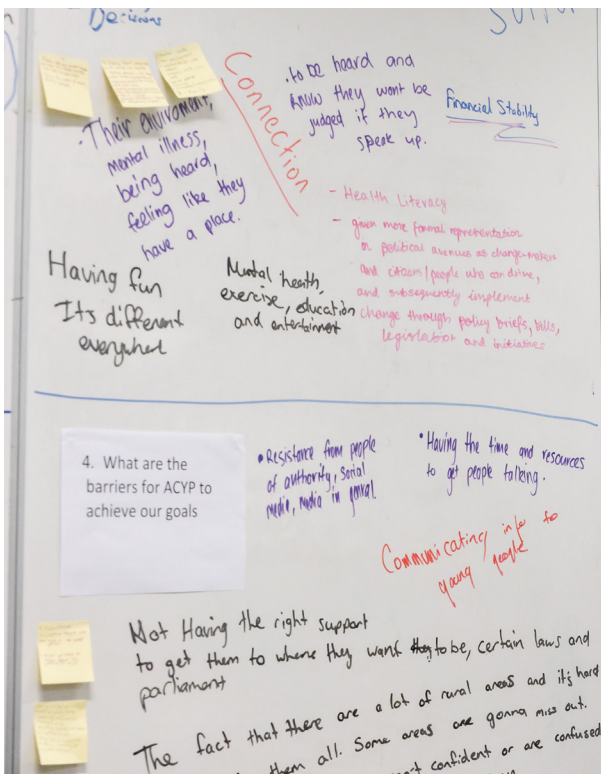 Decisions
Connection
• to be heard and
know they wont be
judged if they
speak up.
Financial Stability
• Their enviroment,
mental illness,
being heard,
feeling like they
have a place.
- Health Literacy
- given more formal representation
or political avenues as change-makers
and citizens/people who can drive,
and subsequently implement
change through policy briefs, bills,
legislation and initiatives
Having fun
Its different
everywhere
Mental health,
exercise, education
and entertainment
4. What are the
barriers for ACYP to
achieve our goals
• Resistance from people
of authority, social
media, media in general.
• Having the time and resources
to get people talking.
Communicating info to
young people
Not Having the right support
to get them to where they want to be, certain laws and
parliament
The fact that there are a lot of rural areas and it's hard
them all. Some areas are gonna miss out.
confident or are confused